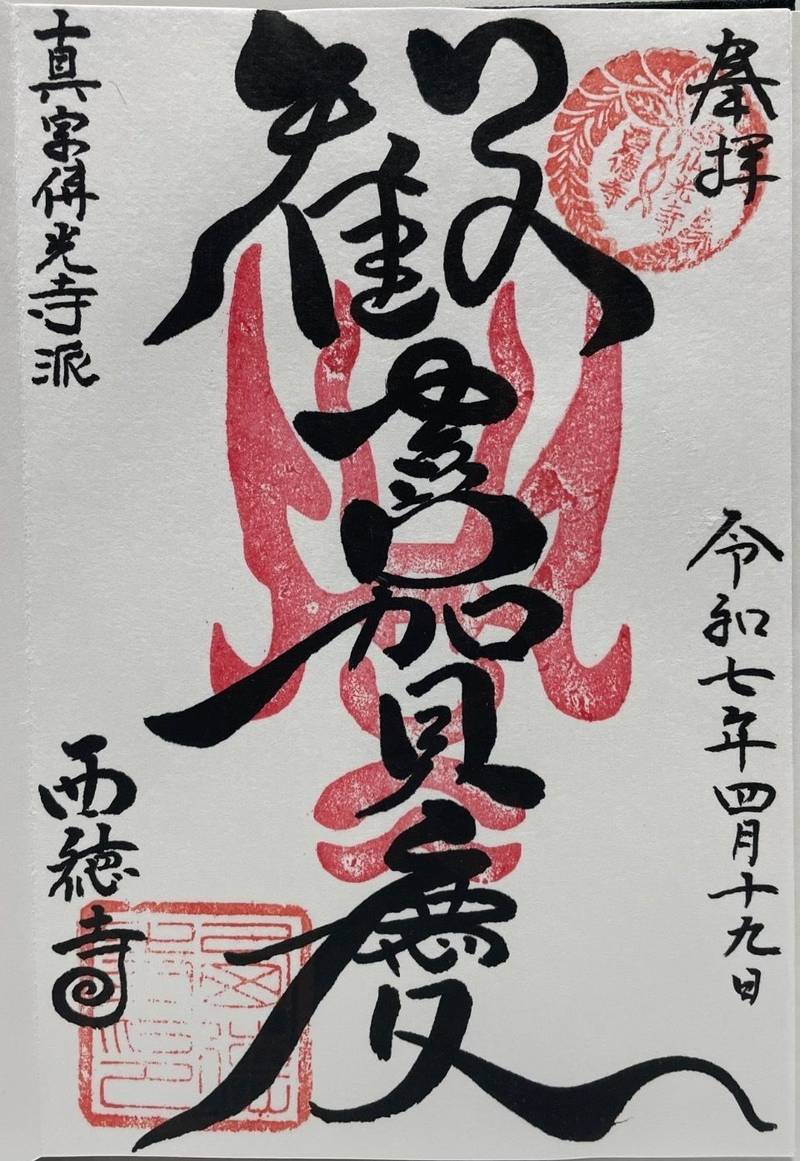 奉拝
令和七年四月十九日
歓喜賀慶
真宗佛光寺派
西徳寺
西徳寺